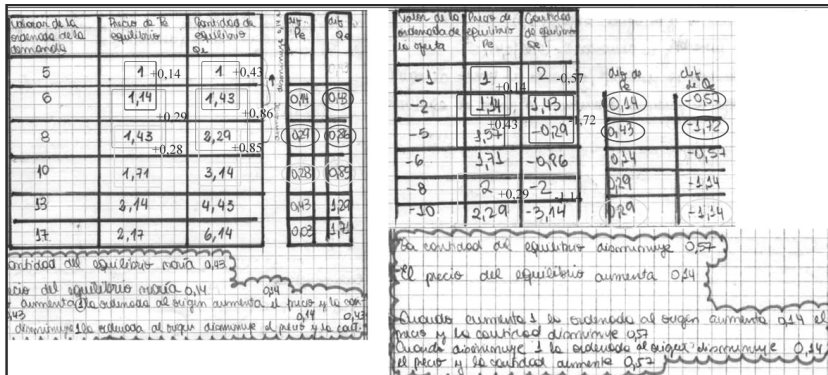 Valores de la ordenada de la demanda | Precio de equilibrio Pe | Cantidad de equilibrio Qe | dif. Pe | dif. Qe
5 | 1 +0,14 | 1 +0,43
6 | 1,14 +0.29 | 1,43 +0,86 | 0,14 | 0,43
8 | 1,43 +0,28 | 2,29 +0,85 | 0,29 | 0,86
10 | 1,71 | 3,14 | 0,28 | 0,85
13 | 2,14 | 4,43 | 0,43 | 1,29
17 | 2,17 | 6,14 | 0,03 | 1,71
cantidad del equilibrio varía 0,43
precio del equilibrio varía 0,14
aumenta 1 la ordenada al origen aumenta el precio y la can-
0,43 0,14 0,14 0,43
disminuye 1 la ordenada al origen disminuye el precio y la cant.
Valor de la ordenada de la oferta | Precio de equilibrio Pe | Cantidad de equilibrio Qe | dif de Pe | dif de Qe
-1 | 1 +0.14 | 2 -0.57
-2 | 1,14 +0.43 | 1,43 -1.72 | 0,14 | -0,57
-5 | 1,57 | -0,29 | 0,43 | -1,72
-6 | 1,71 | -0,86 | 0,14 | -0,57
-8 | 2 +0.29 | -2 -1.14 | 0,29 | -1,14
-10 | 2,29 | -3,14 | 0,29 | -1,14
La cantidad del equilibrio disminuye 0,57
El precio del equilibrio aumenta 0,14
Cuando aumenta 1 la ordenada al origen aumenta 0,14 el
precio y la cantidad disminuye 0,57
Cuando disminuye 1 la ordenada al origen disminuye 0,14
el precio y la cantidad aumenta 0,57